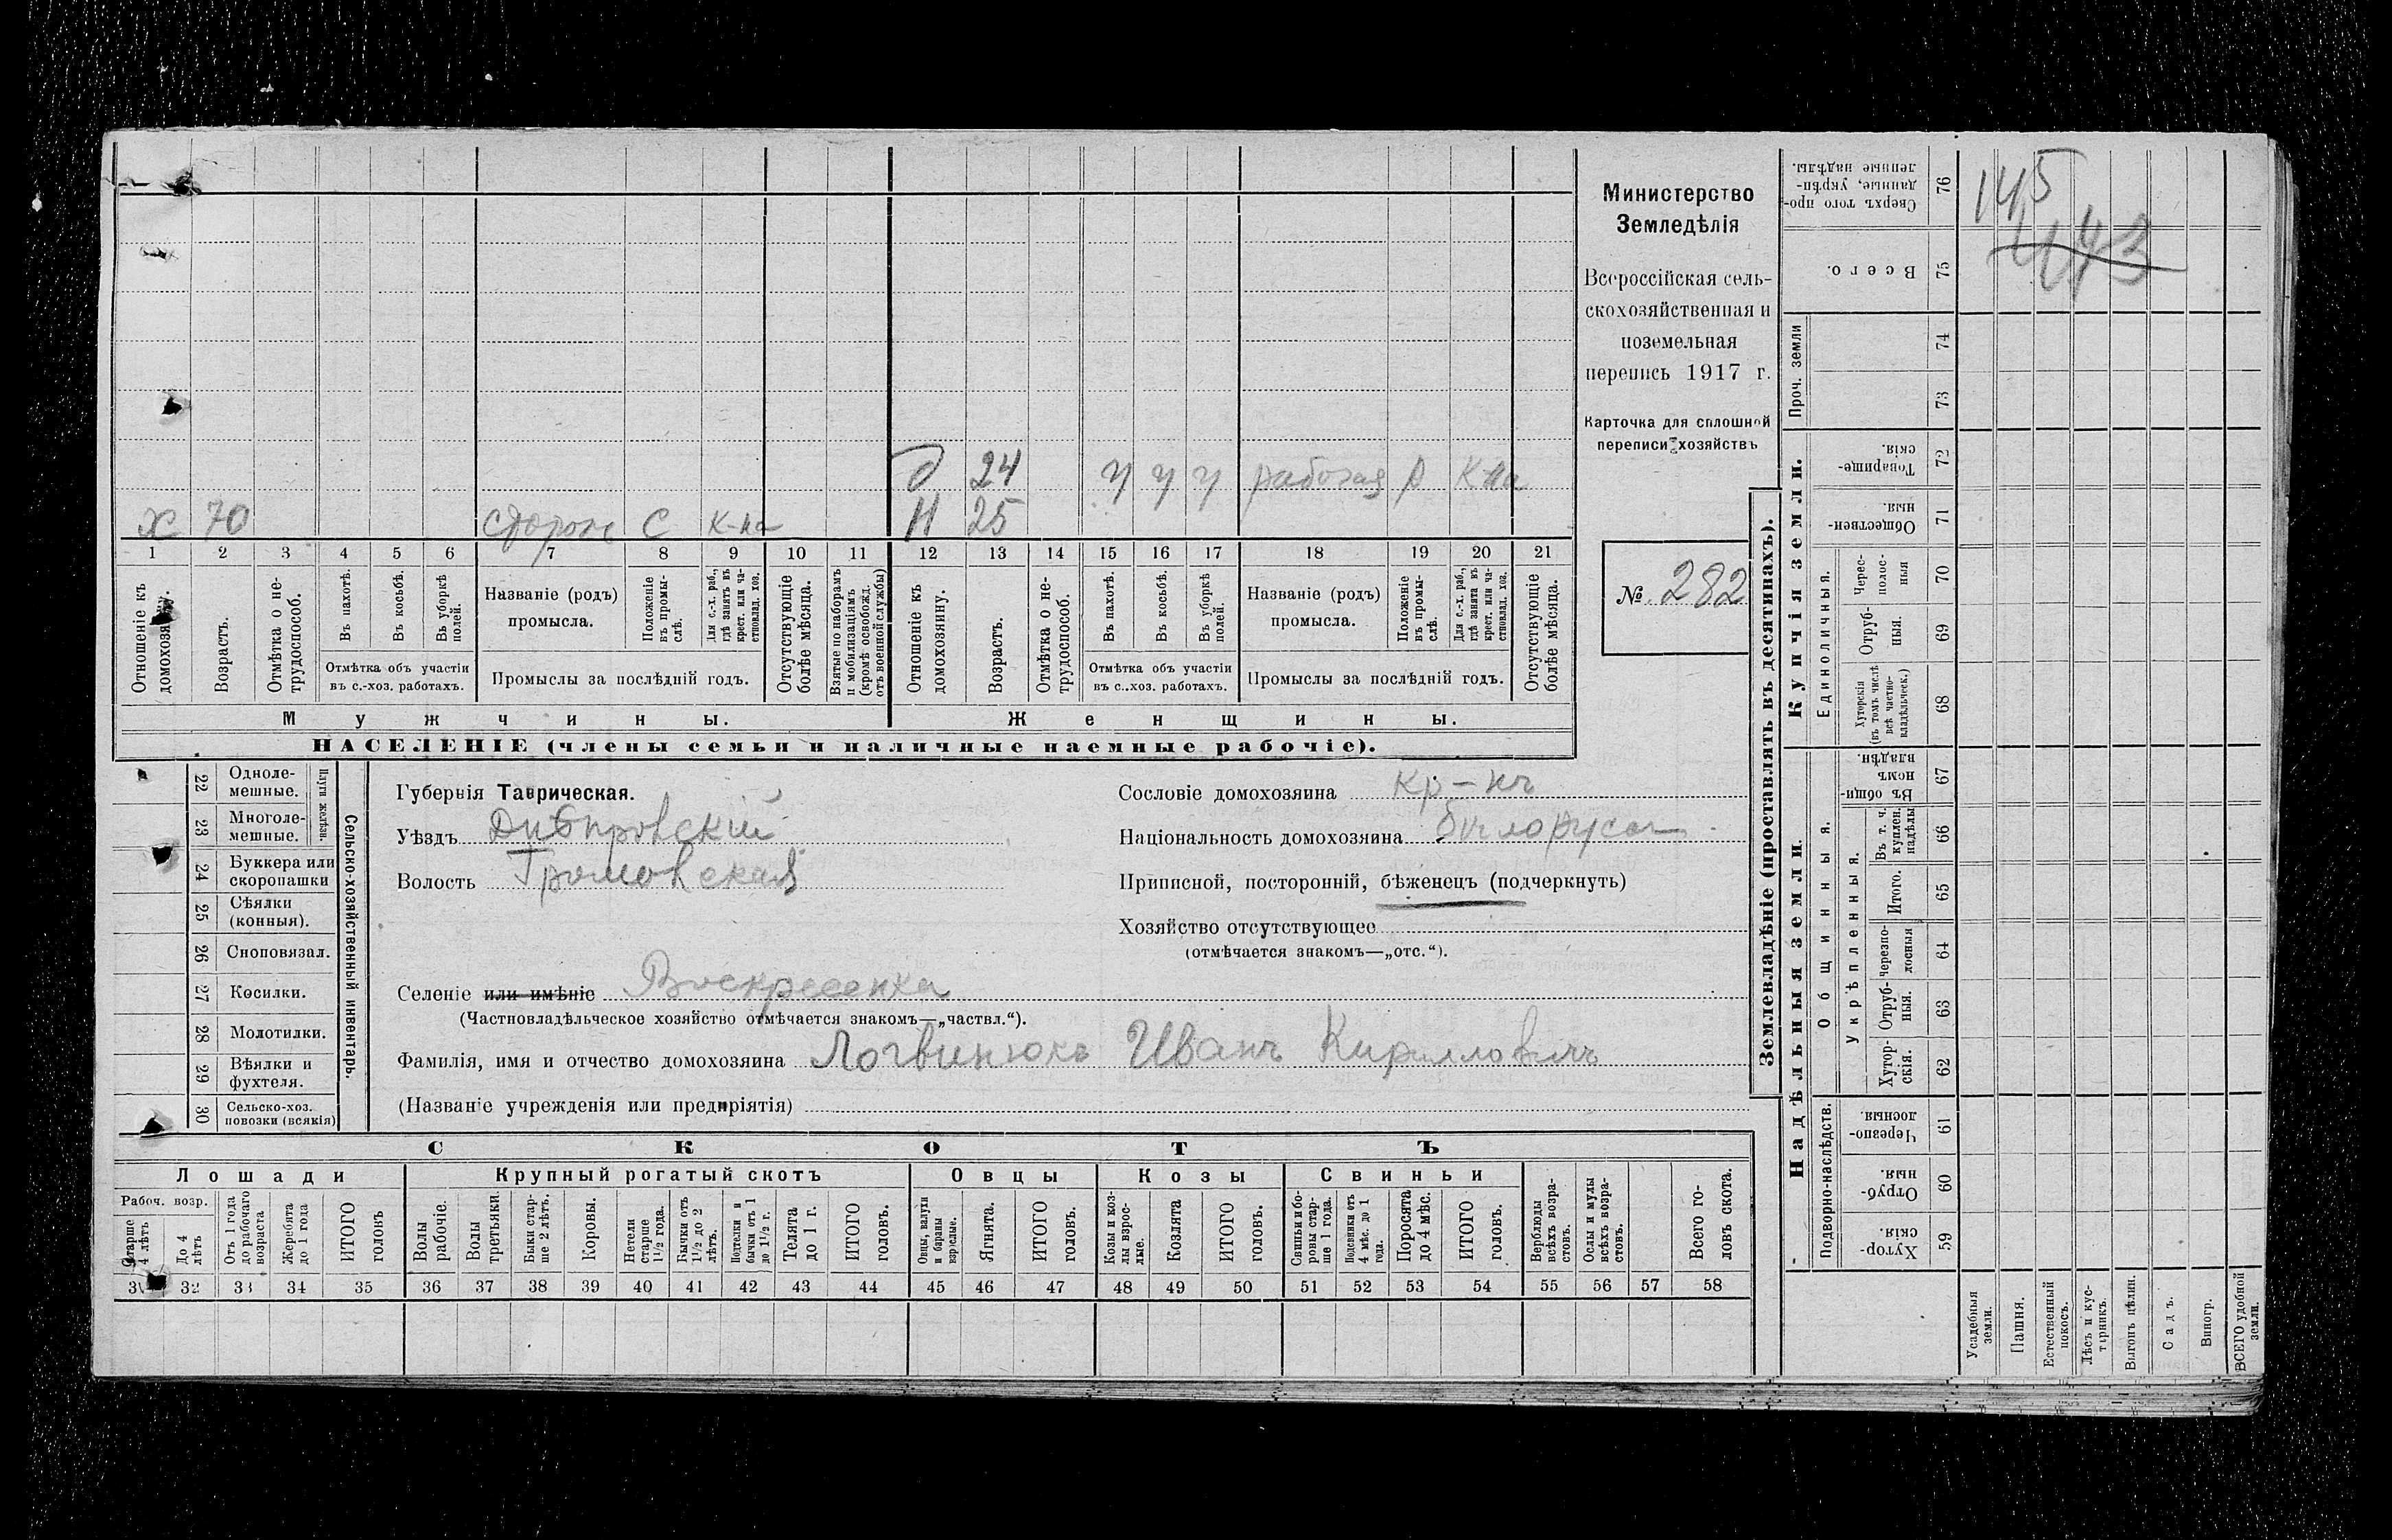 Министерство
Земледѣлія
Всероссійская сель-
скохозяйственная и
поземельная
перепись 1917 г.
Карточка для сплошной
переписи хозяйствъ
№ 282
145
443
д 24 у у у рабочая р к-на
х 70 сторож с к-на н 25
1 2 3 4 5 6 7 8 9 10 11 12 13 14 15 16 17 18 19 20 21
Отношеніе къ домохозяину.
Возрастъ.
Отмѣтка о не-трудоспособ.
Въ пахотѣ.
Въ косьбѣ.
Въ уборкѣ полей.
Отмѣтка объ участіи
въ с.-хоз. работахъ.
Названіе (родъ)
промысла.
Положеніе въ промы-слѣ.
Для с.-х. раб., гдѣ занятъ въ крест. или ча-стновлад. хоз.
Промыслы за послѣдній годъ.
Отсутствующіе болѣе мѣсяца.
Взятые по наборамъ и мобилизаціямъ (кромѣ освобожд. отъ военной службы)
Отношеніе къ домохозяину.
Возрастъ.
Отмѣтка о не-трудоспособ.
Въ пахотѣ.
Въ косьбѣ.
Въ уборкѣ полей.
Отмѣтка объ участіи
въ с.-хоз. работахъ.
Названіе (родъ)
промысла.
Положеніе въ промы-слѣ.
Для с.-х. раб., гдѣ занята въ крест. или ча-стновлад. хоз.
Промыслы за послѣдній годъ.
Отсутствующіе болѣе мѣсяца.
Мужчины. Женщины.
НАСЕЛЕНІЕ (члены семьи и наличные наемные рабочіе).
22 Одноле-мешные.
23 Многоле-мешные.
Плуги желѣзн.
24 Буккера или скоропашки
25 Сѣялки (конныя).
26 Сноповязал.
27 Косилки.
28 Молотилки.
29 Вѣялки и фухтеля.
30 Сельско-хоз. повозки (всякія)
Сельско-хозяйственный инвентарь.
Губернія Таврическая.
Уѣздъ Днѣпровскій
Волость Громовская
Селеніе или имѣніе Воскресенка
(Частновладѣльческое хозяйство отмѣчается знакомъ—„частвл.“).
Фамилія, имя и отчество домохозяина Логвинюкъ Иванъ Кирилловичъ
(Названіе учрежденія или предпріятія)
Сословіе домохозяина кр-нъ
Національность домохозяина бѣлорусъ
Приписной, посторонній, бѣженецъ (подчеркнуть)
Хозяйство отсутствующее
(отмѣчается знакомъ—„отс.“).
СКОТЪ
Лошади Крупный рогатый скотъ Овцы Козы Свиньи
Рабоч. возр.
Старше 4 лѣтъ
До 4 лѣтъ
Отъ 1 года до рабочаго возраста
Жеребята до 1 года
ИТОГО головъ
Волы рабочіе.
Волы третьяки.
Быки стар-ше 2 лѣтъ.
Коровы.
Нетели старше 1½ года.
Бычки отъ 1½ до 2 лѣтъ.
Подтелки и бычки отъ 1 до 1½ г.
Телята до 1 г.
ИТОГО головъ.
Овцы, валухи и бараны взрослые.
Ягнята.
ИТОГО головъ.
Козы и коз-лы взрос-лые.
Козлята
ИТОГО головъ.
Свиньи и бо-ровы стар-ше 1 года.
Подсвинки отъ 4 мѣс. до 1 года.
Поросята до 4 мѣс.
ИТОГО головъ.
Верблюды всѣхъ возра-стовъ.
Ослы и мулы всѣхъ возра-стовъ.
Всего го-ловъ скота.
31 32 33 34 35 36 37 38 39 40 41 42 43 44 45 46 47 48 49 50 51 52 53 54 55 56 57 58
Землевладѣніе (проставлять въ десятинахъ).
Надѣльныя земли.
Купчія земли.
Проч. земли
Подворно-наслѣдств.
Общинныя.
Укрѣпленныя.
Единоличныя.
Сверхъ того про-данные, укрѣп-ленные надѣлы. 76
Всего. 75
74
73
Товарище-скія. 72
Обществен-ныя. 71
Черес-полос-ныя 70
Отруб-ныя. 69
Хуторскія (въ томъ числѣ всѣ частно-владѣльческ.) 68
Въ общин-номъ владѣн. 67
Въ т. ч. куплен. надѣлы 66
Итого. 65
Черезпо-лосныя 64
Отруб-ныя. 63
Хутор-скія. 62
Черезпо-лосныя. 61
Отруб-ныя. 60
Хутор-скія. 59
Усадебныя земли.
Пашня.
Естественный покосъ.
Лѣсъ и кус-тарникъ.
Выгонъ цѣлин.
Садъ.
Виногр.
ВСЕГО удобной земли.